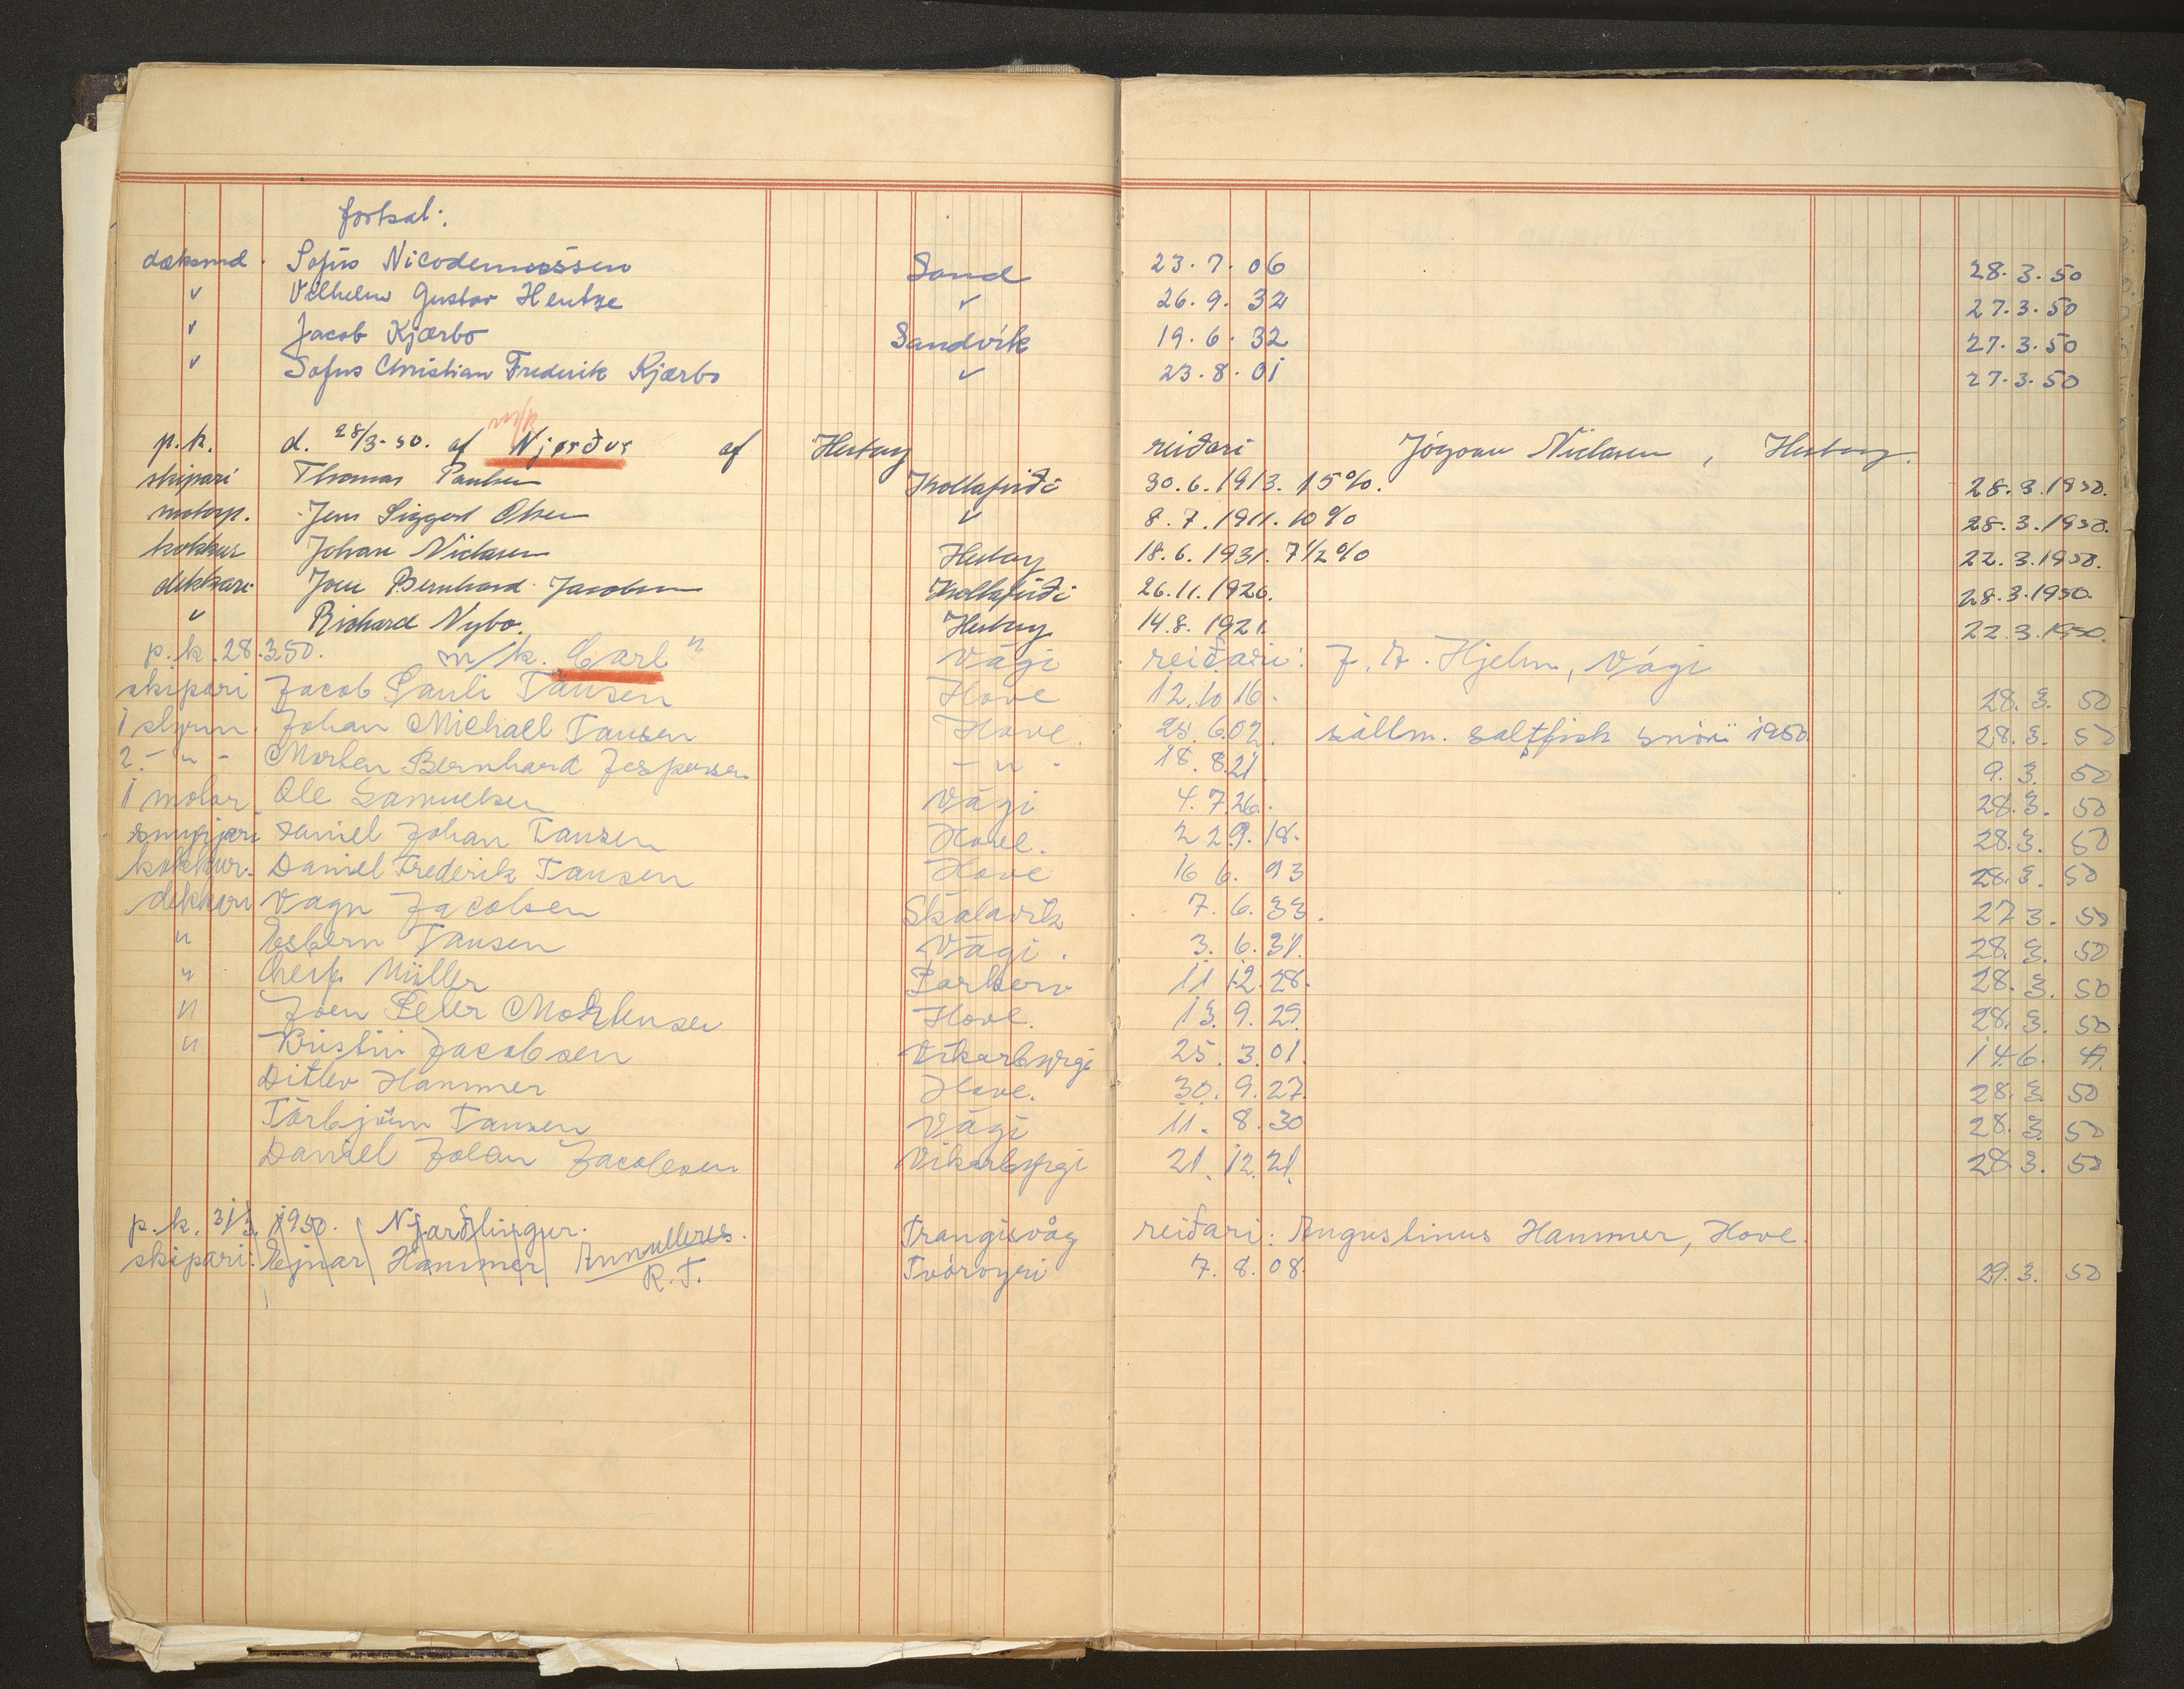 fortsat:
dæksmd. Sofus Nicodemussen Sand 23.7.06 28.3.50
" Vilhelm Gustav Hentze " 26.9.32 27.3.50
" Jacob Kjærbo Sandvík 19.6.32 27.3.50
" Sofus Christian Frederik Kjærbo " 23.8.01 27.3.50
p.k. d. 28/3-50. af Njørður af Hestoy reiðari Jógvan Niclasen, Hestoy.
skipari Thomas Paulsen Kollafirði 30.6.1913. 15%. 28.3.1950.
motorp. Jens Siggert Olsen " 8.7.1911. 10% 28.3.1950.
kokkur Johan Niclasen Hestoy 18.6.1931. 7½% 22.3.1950.
dekkari Joen Bernhard Jacobsen Kollafirði 26.11.1926. 28.3.1950.
" Richard Nybo. Hestoy 14.8.1921. 22.3.1950.
p.k. 28.3.50. m/k. Carl" Vági reiðari: J. A. Hjelm, Vági
skipari Jacob Pauli Tausen Hove 12.10.16. 28.3.50
1 stýrm. Johan Michael Tausen Hove. 25.6.02. sáttm. saltfisk snøri 1950. 28.3.50
2. - " - Morten Bernhard Jespersen - " - 18.8.21. 9.3.50
1 motor. Ole Samuelsen Vági 4.7.26. 28.3.50
smyrjari Daniel Johan Tausen Hove. 22.9.18. 28.3.50
kokkur. Daniel Frederik Tausen Hove 16.6.93 28.3.50
dekkari Vagn Jacobsen Skálavík 7.6.33. 27.3.50
" Esbern Tausen Vági. 3.6.31. 28.3.50
" Müller Porkeri 11.12.28. 28.3.50
" Joen Peter Mortensen Hove. 13.9.29. 28.3.50
" Kristin Jacobsen Víkarbyrgi 25.3.01. 14.6.49.
Ditlev Hammer Hove. 30.9.27. 28.3.50
Tórbjørn Tausen Vági 11.8.30 28.3.50
Daniel Johan Jacobsen Vikarbyrgi 21.12.21. 28.3.50
p.k. 31/3 1950. Njarðlingur. Trangisvåg reiðari: Augustinus Hammer, Hove.
skipari: Ejnar Hammer Annulleres. Tvöroyri 7.8.08. 29.3.50
R.T.